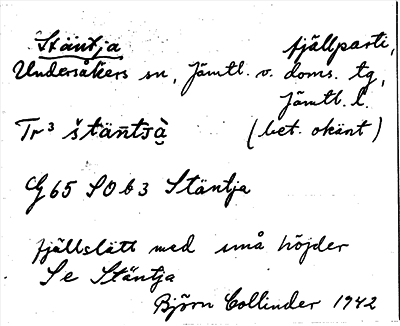 Stäntja fjällparti,
Undersåkers sn, Jämtl. v. doms. tg,
Jämtl. l.
Tr³ štäntsà̱ (bet. okänt)
G65 SO b3 Stäntja
fjällslätt med små höjder
Se Stäntja
Björn Collinder 1942